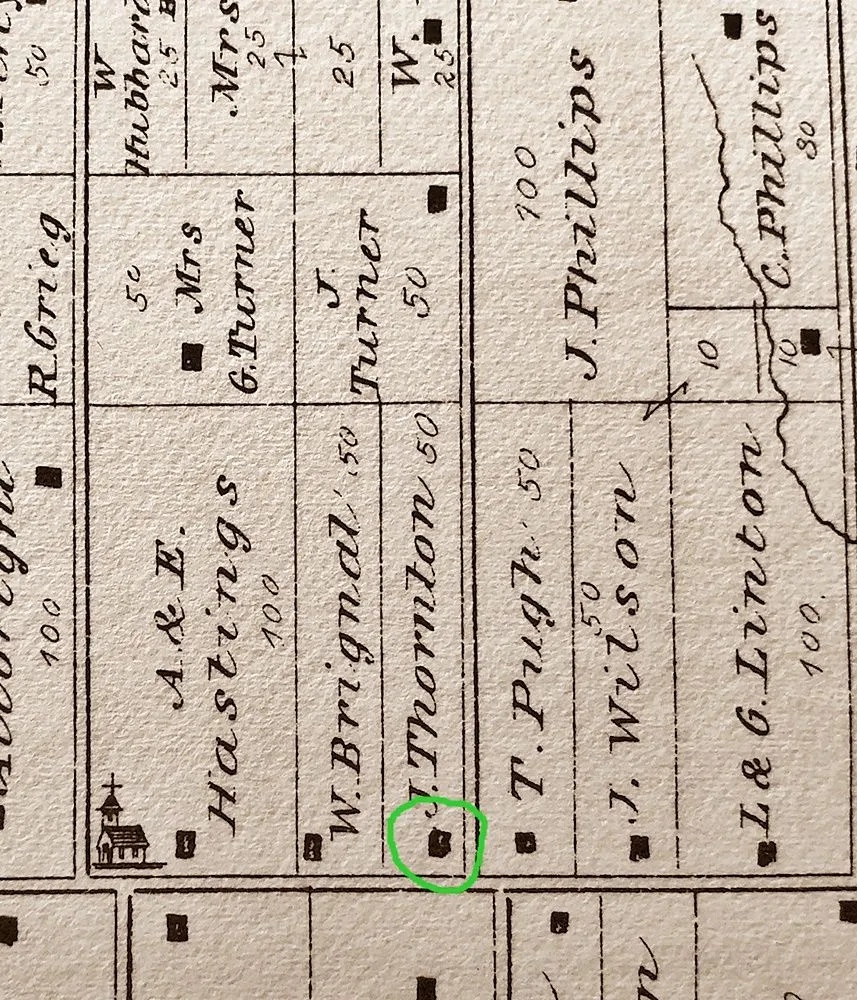 50
R. Grieg
100
W
Hubbard
25
Mrs
25
25
W.
25
50
Mrs
G. Turner
J.
Turner
50
100
J. Phillips
C. Phillips
80
10
10
A. & E.
Hastings
100
W. Brignal 50
J. Thornton 50
T. Pugh 50
50
J. Wilson
L & G. Linton
100.